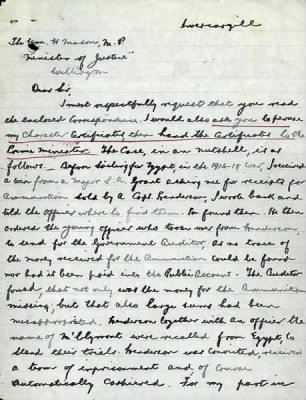 Invercargill
The Hon. H Mason, M.P.
Minister of Justice
Wellington
Dear Sir,
I most respectfully request that you read
the enclosed Correspondence. I would also ask you to peruse
my Character Certificates, then hand the Certificates to the
Prime Minister. The Case, in an nutshell, is as
follows. Before Sailing for Egypt, in the 1914-18 war, I received
a wire from a Major S.A. Grant asking me for receipts for
Ammunition sold by a Capt. Henderson, I wrote back and
told the officer where to find them. He found them. He then
ordered the young officer who took over from Henderson,
to send for the Government Auditor, as no trace of
the money received for the Ammunition could be found
nor had it been paid into the Public Account. The Auditor
found, that not only was the money for the Ammunition
missing, but that also large sums had been
misappropriated. Henderson together with an officer the
name of McClymont were recalled from Egypt, to
stand their trials. Henderson was convicted, received
a term of imprisonment and, of course
automatically Cashiered. For my part in